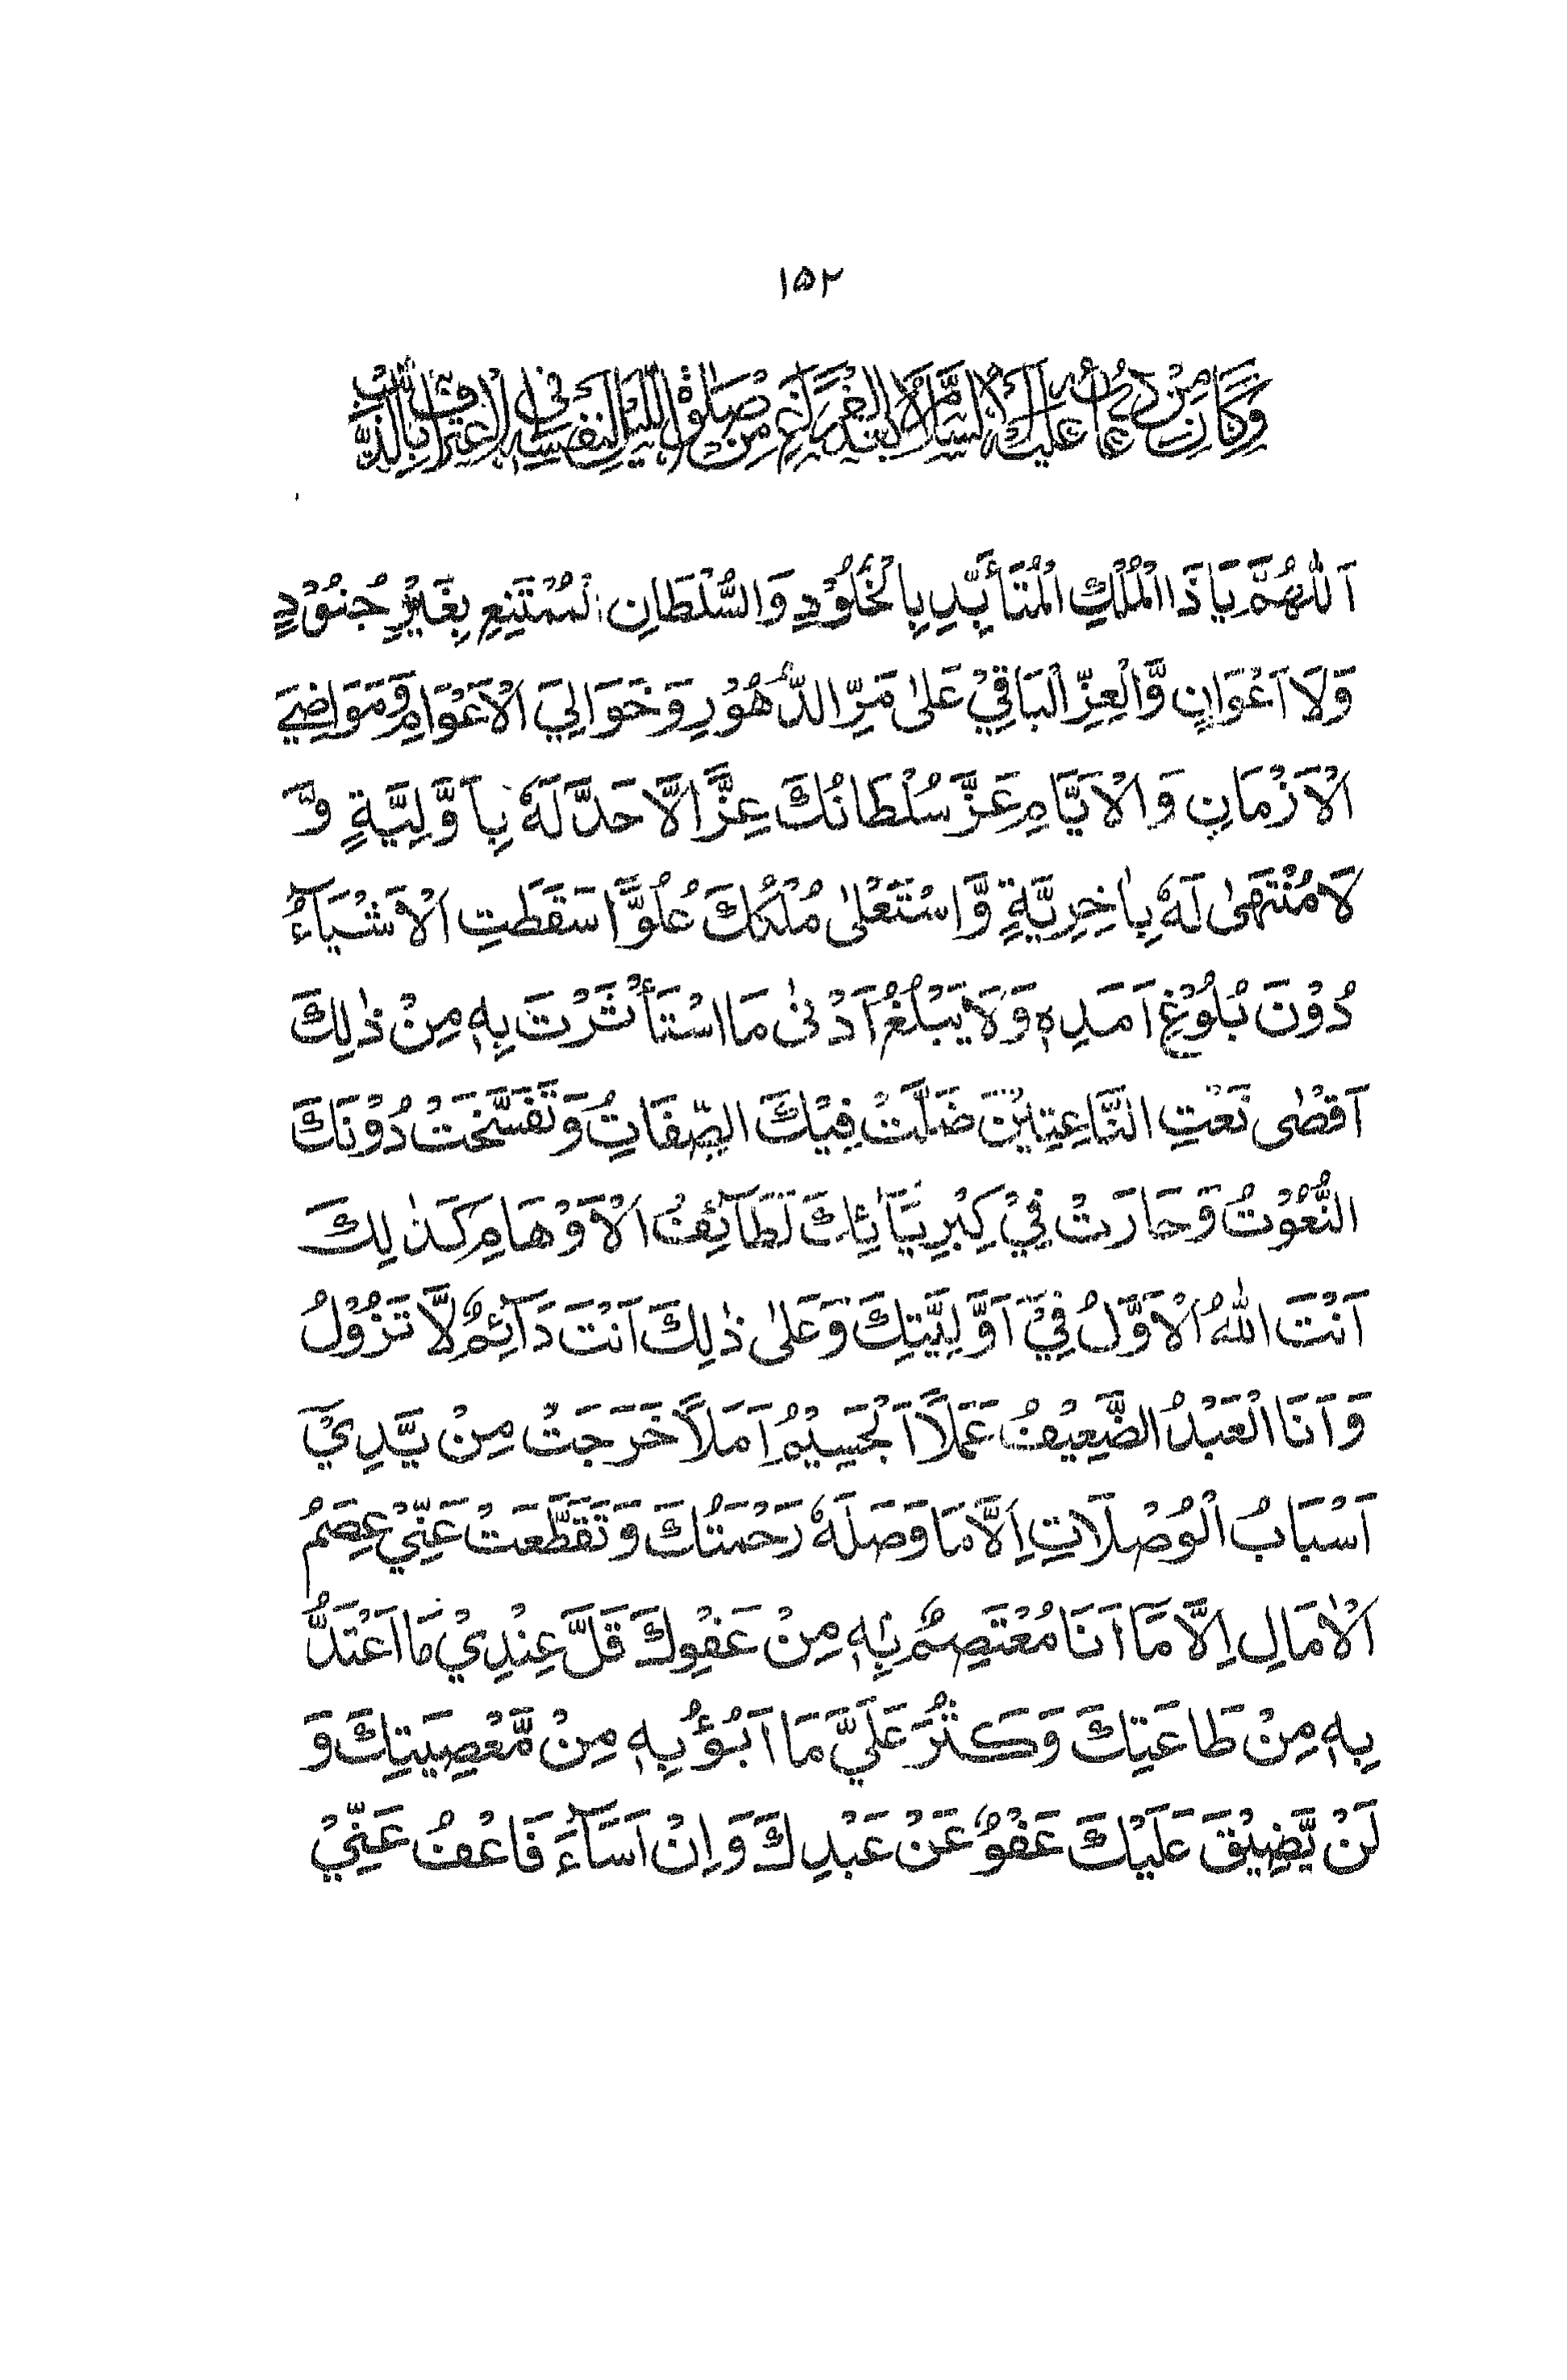 ۱۵۲
وَكَانَ مِنْ دُعَائِهِ عَلَيْهِ السَّلَامُ بَعْدَ الْفَرَاغِ مِنْ صَلٰوةِ اللَّيْلِ لِنَفْسِهِ فِي الْاِعْتِرَافِ بِالذَّنْبِ
اَللّٰهُمَّ يَا ذَا الْمُلْكِ الْمُتَاَبِّدِ بِالْخُلُوْدِ وَالسُّلْطَانِ الْمُمْتَنِعِ بِغَيْرِ جُنُوْدٍ
وَّلَا اَعْوَانٍ وَّالْعِزِّ الْبَاقِيْ عَلٰى مَرِّ الدُّهُوْرِ وَخَوَالِيَ الْاَعْوَامِ وَمَوَاضِيَ
الْاَزْمَانِ وَالْاَيَّامِ عَزَّ سُلْطَانُكَ عِزًّا لَّا حَدَّ لَهٗ بِاَوَّلِيَّةٍ وَّ
لَا مُنْتَهٰى لَهٗ بِاٰخِرِيَّةٍ وَّاسْتَعْلٰى مُلْكُكَ عُلُوًّا سَقَطَتِ الْاَشْيَآءُ
دُوْنَ بُلُوْغِ اَمَدِهٖ وَلَا يَبْلُغُ اَدْنٰى مَا اسْتَأْثَرْتَ بِهٖ مِنْ ذٰلِكَ
اَقْصٰى نَعْتِ النَّاعِتِيْنَ ضَلَّتْ فِيْكَ الصِّفَاتُ وَتَفَسَّخَتْ دُوْنَكَ
النُّعُوْتُ وَحَارَتْ فِيْ كِبْرِيَآئِكَ لَطَآئِفُ الْاَوْهَامِ كَذٰلِكَ
اَنْتَ اللّٰهُ الْاَوَّلُ فِيْ اَوَّلِيَّتِكَ وَعَلٰى ذٰلِكَ اَنْتَ دَآئِمٌ لَّا تَزُوْلُ
وَاَنَا الْعَبْدُ الضَّعِيْفُ عَمَلًا اَلْجَسِيْمُ اَمَلًا خَرَجَتْ مِنْ يَّدِيْ
اَسْبَابُ الْوُصْلَاتِ اِلَّا مَا وَصَلَهٗ رَحْمَتُكَ وَتَقَطَّعَتْ عَنِّيْ عِصَمُ
الْاٰمَالِ اِلَّا مَا اَنَا مُعْتَصِمٌ بِهٖ مِنْ عَفْوِكَ قَلَّ عِنْدِيْ مَا اَعْتَدُّ
بِهٖ مِنْ طَاعَتِكَ وَكَثُرَ عَلَيَّ مَا اَبُوْءُ بِهٖ مِنْ مَّعْصِيَتِكَ وَ
لَنْ يَّضِيْقَ عَلَيْكَ عَفْوٌ عَنْ عَبْدِكَ وَاِنْ اَسَآءَ فَاعْفُ عَنِّيْ